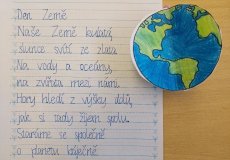 Den Země
Naše Země kulatá,
slunce svítí ze zlata
Na vody a oceány,
na zvířata mezi námi.
Hory hledí z výšky dolů,
jak si tady žijem spolu.
Staráme se společně
o planetu báječně.